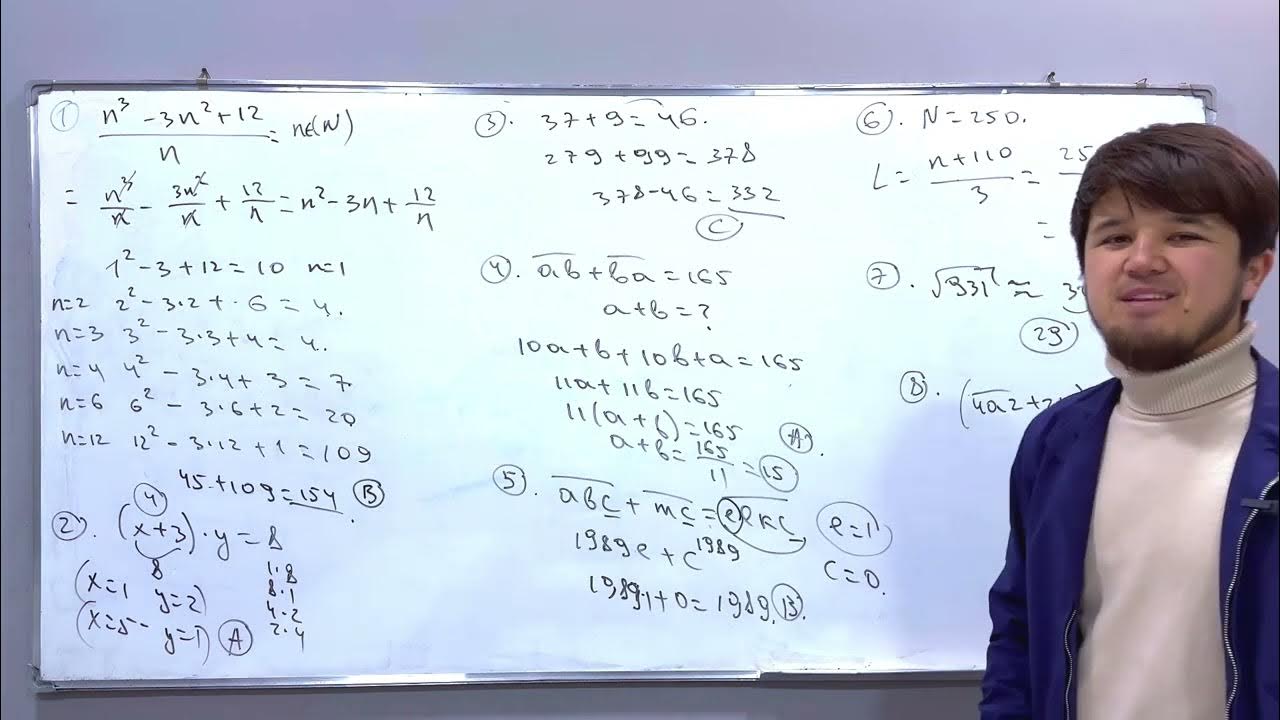 ① n³ - 3n² + 12 / n = n∈(N)
= n³/n - 3n²/n + 12/n = n² - 3n + 12/n
1² - 3 + 12 = 10 n=1
n=2 2² - 3·2 + · 6 = 4.
n=3 3² - 3·3 + 4 = 4.
n=4 4² - 3·4 + 3 = 7
n=6 6² - 3·6 + 2 = 20
n=12 12² - 3·12 + 1 = 109
45 + 109 = 154 Ⓑ
④
②. (x+3)·y = 8
8
(x=1 y=2)
(x=5 - y=1) Ⓐ
1·8
8·1
4·2
2·4
③. 37 + 9 = 46.
279 + 99 = 378
378 - 46 = 332
Ⓒ
④. ab + ba = 165
a+b = ?
10a + b + 10b + a = 165
11a + 11b = 165
11(a + b) = 165
a+b = 165/11 = 15 Ⓐ.
⑤. abc + mc = eekc
e=1
1989e + c¹⁹⁸⁹
c=0.
1989·1 + 0 = 1989. Ⓑ.
⑥. N = 250.
L = n+110 / 3 = 25
=
⑦. √931 ≈ 3
29
⑧. (4a2 + 2